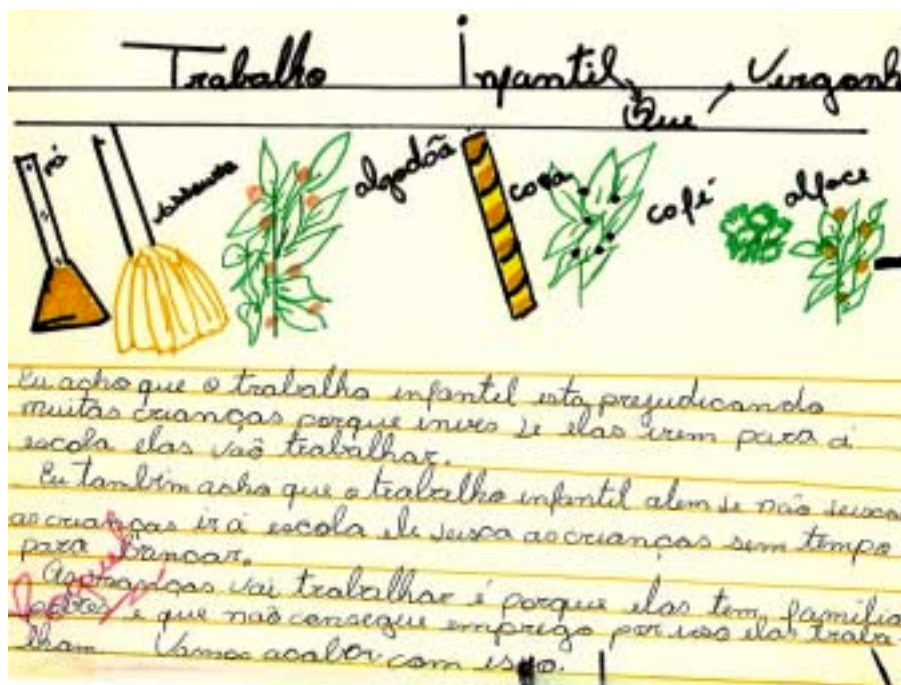 Trabalho Infantil
Que Vergonh
pá
vassoura
algodão
cana
café
alface
Eu acho que o trabalho infantil esta prejudicando
muitas crianças porque inves de elas irem para a
escola elas vaõ trabalhar.
Eu tambem acho que o trabalho infantil alem de não deixa
as crianças ir á escola ele deixa as crianças sem tempo
para brancar.
As crianças vai trabalhar é porque elas tem familia
pobres e que não consegue emprego por isso elas traba-
lham Vamos acabar com isso.
Raquel